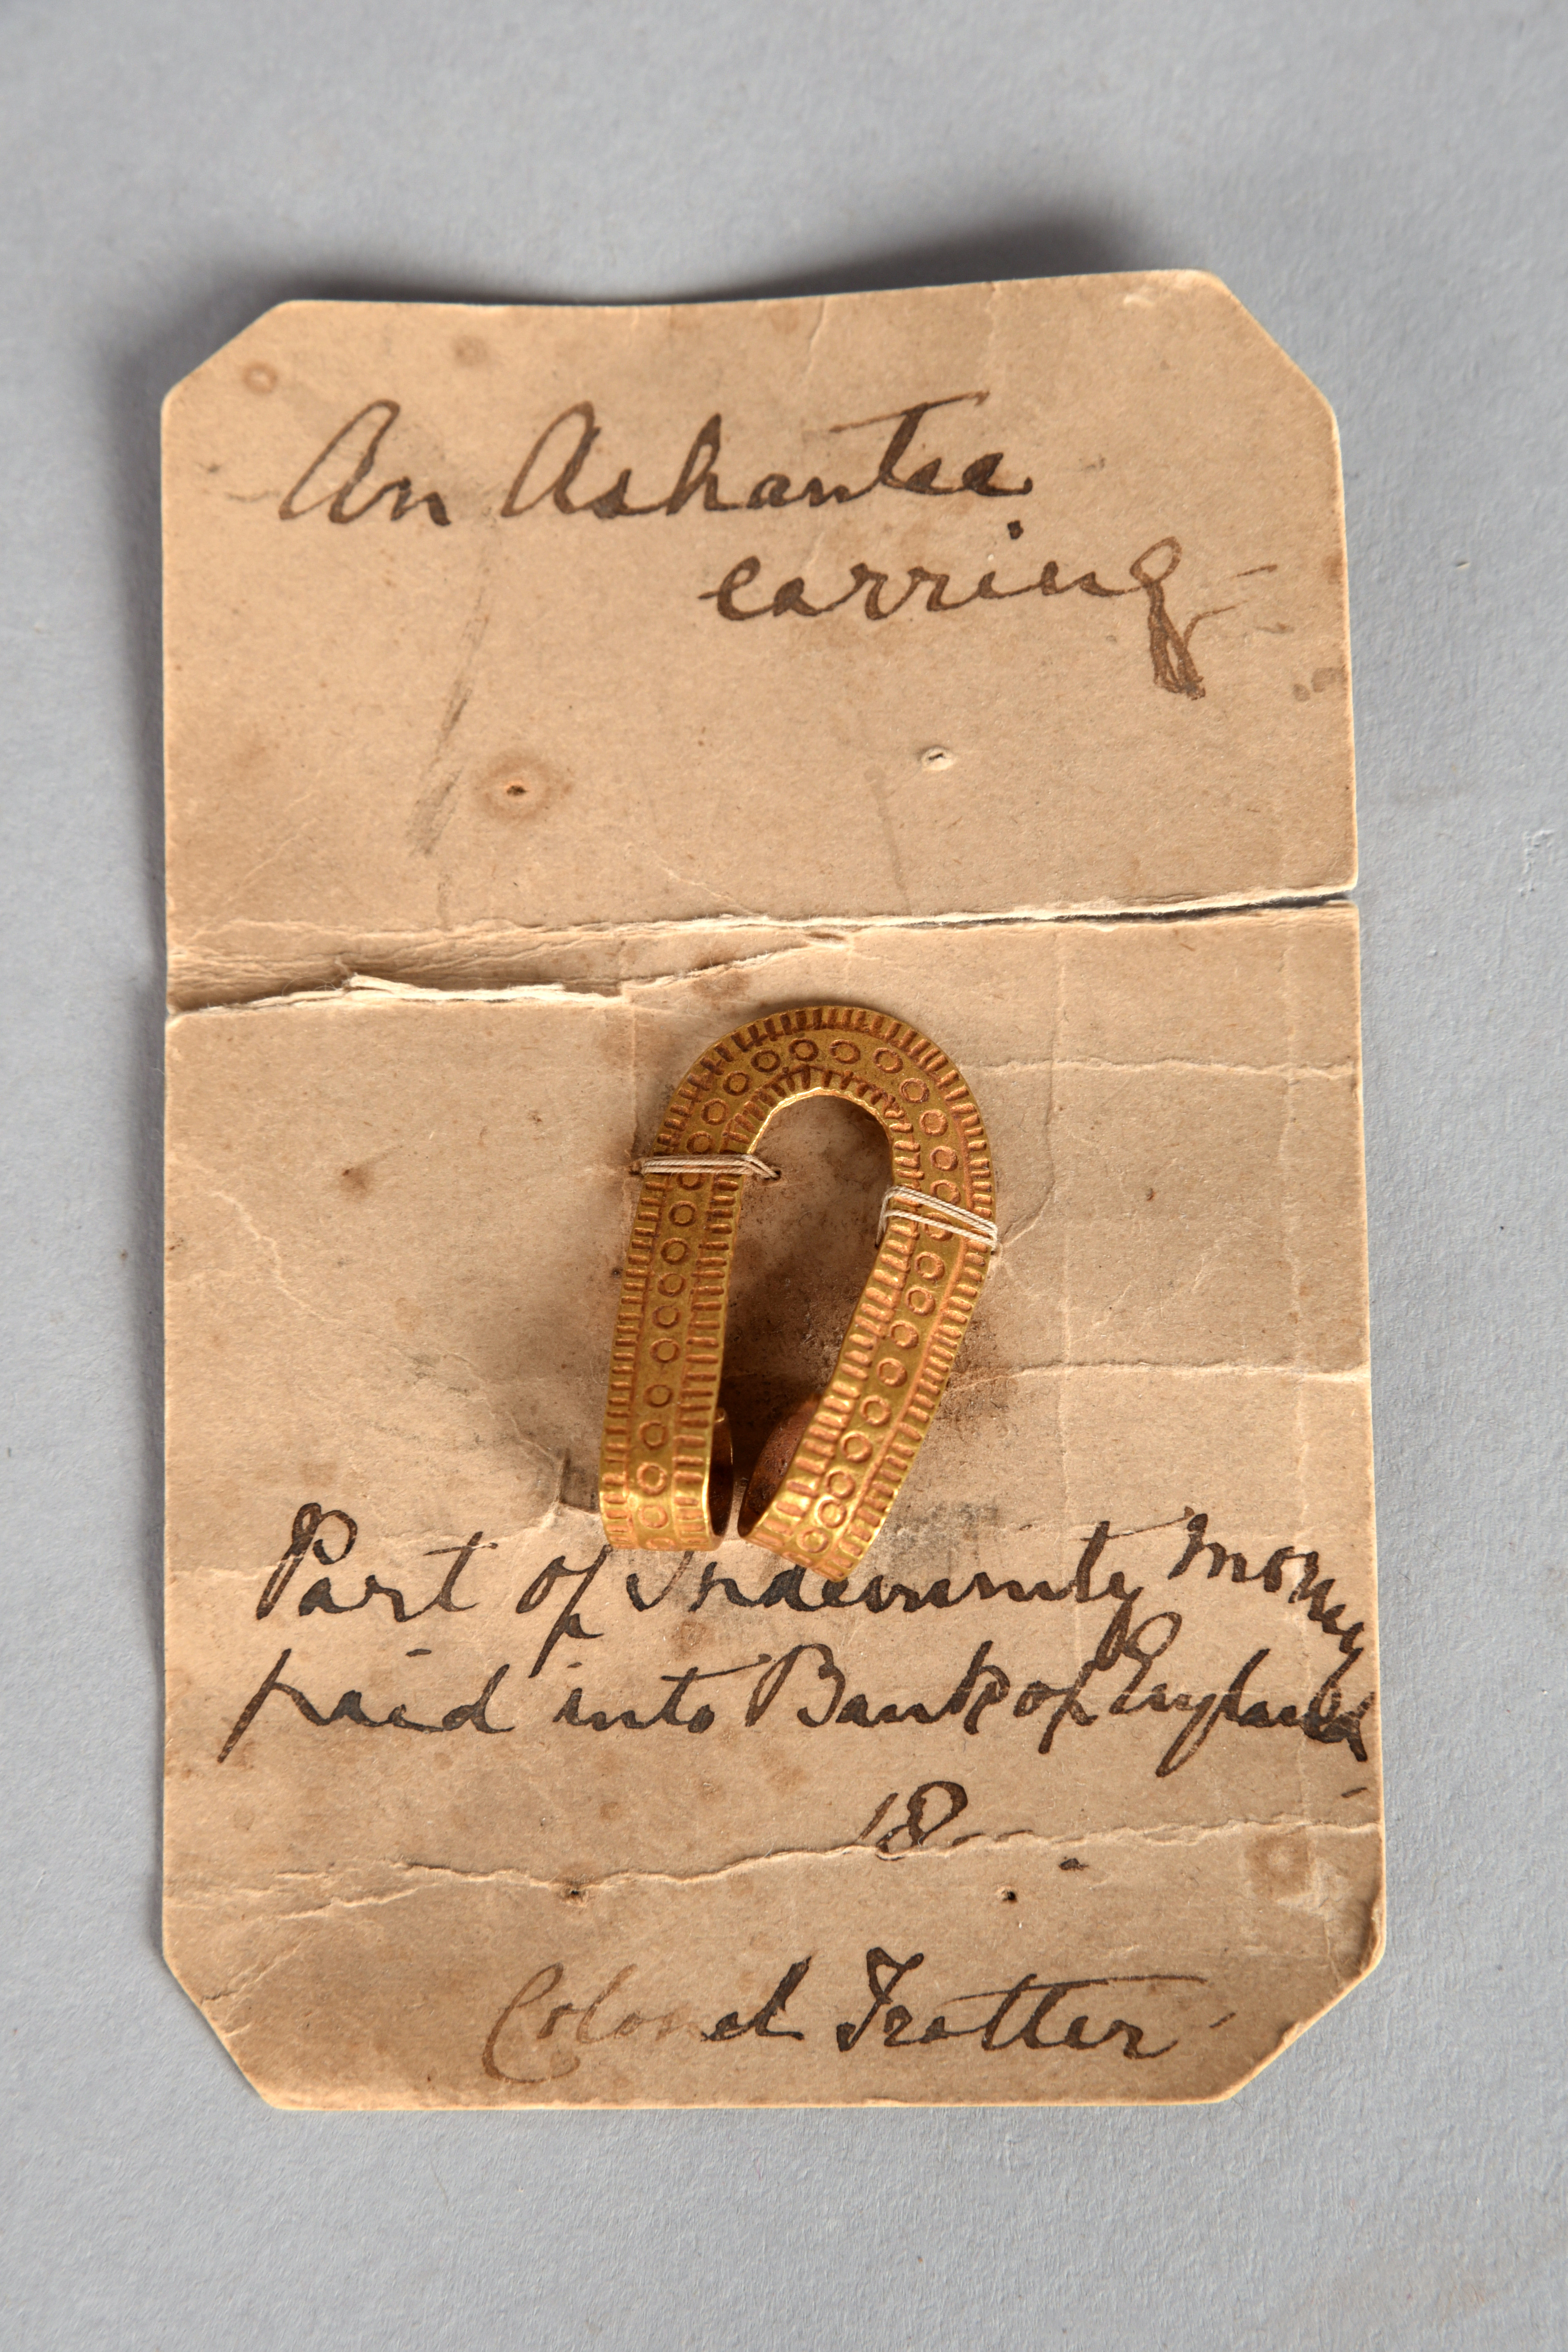 An Ashantee
earring
Part of Indemnity Money
paid into Bank of England
18--
Colonel Trotter